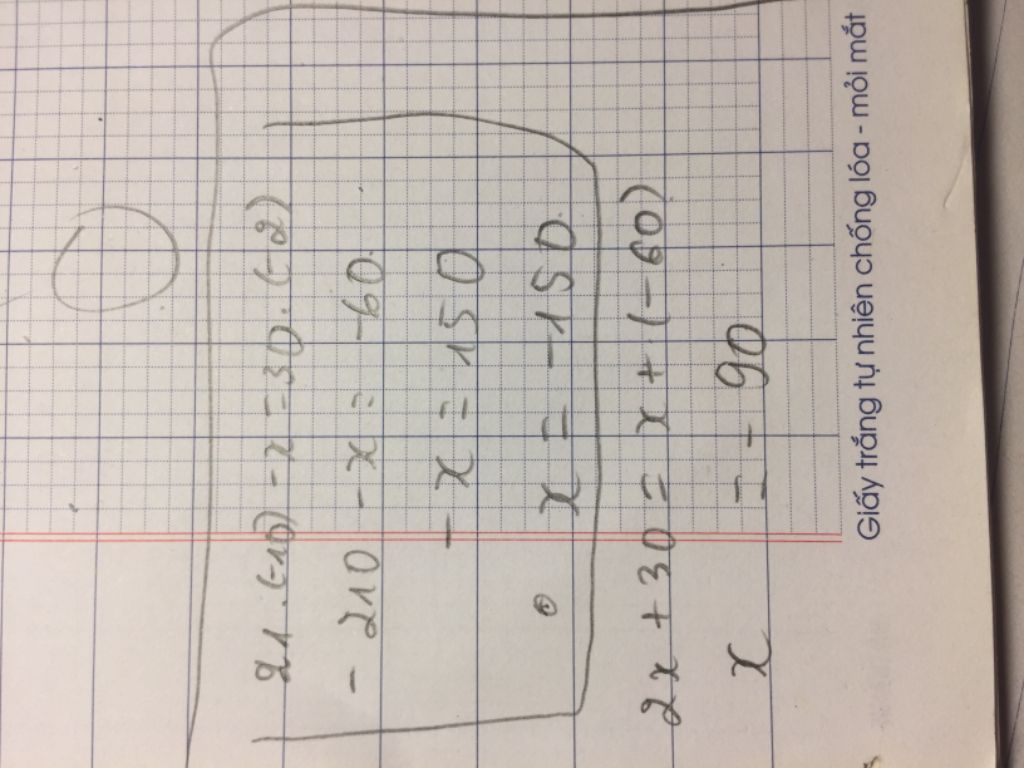 21.(-10) - x = 30.(-2)
- 210 - x = -60.
- x = 150
x = -150.
2x + 30 = x + (-60)
x = - 90
Giấy trắng tự nhiên chống lóa - mỏi mắt